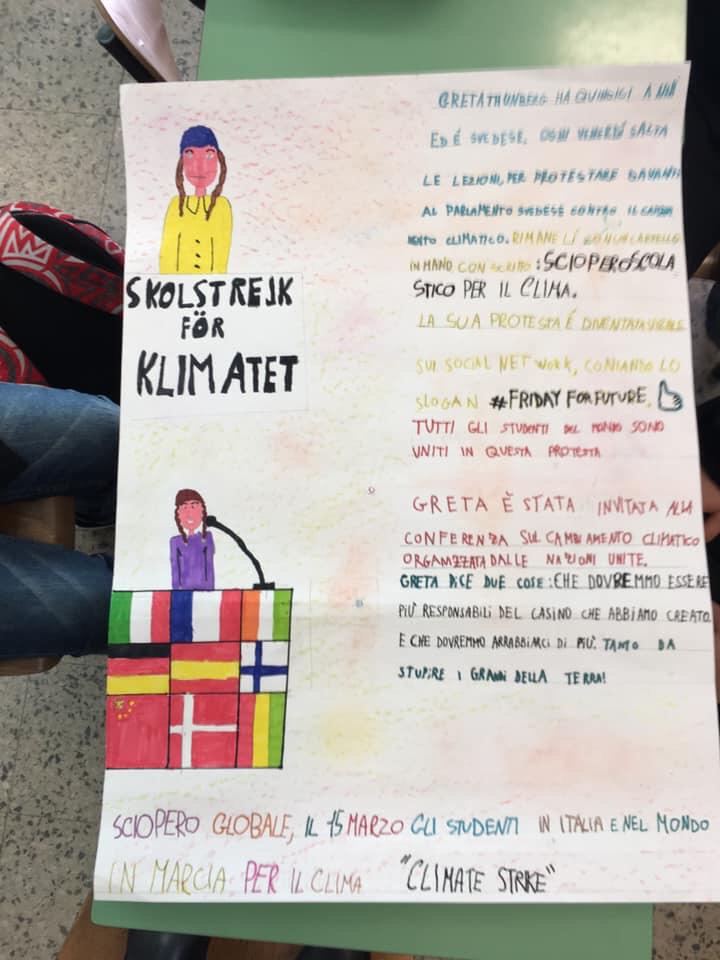 GRETA THUNBERG HA QUINDICI ANNI
ED É SVEDESE, OGNI VENERDÍ SALTA
LE LEZIONI, PER PROTESTARE DAVANTI
AL PARLAMENTO SVEDESE CONTRO IL CAMBIA
MENTO CLIMATICO. RIMANE LÍ CON UN CARTELLO
IN MANO CON SCRITTO: SCIOPERO SCOLA
STICO PER IL CLIMA.
LA SUA PROTESTA É DIVENTATA VIRALE
SUI SOCIAL NETWORK, CONIANDO LO
SLOGAN #FRIDAY FOR FUTURE.
TUTTI GLI STUDENTI DEL MONDO SONO
UNITI IN QUESTA PROTESTA
SKOLSTREJK
FÖR
KLIMATET
GRETA È STATA INVITATA ALLA
CONFERENZA SUL CAMBIAMENTO CLIMATICO
ORGANIZZATA DALLE NAZIONI UNITE.
GRETA DICE DUE COSE: CHE DOVREMMO ESSERE
PIÙ RESPONSABILI DEL CASINO CHE ABBIAMO CREATO
E CHE DOVREMMO ARRABBIARCI DI PIÙ. TANTO DA
STUPIRE I GRANDI DELLA TERRA!
SCIOPERO GLOBALE, IL 15 MARZO GLI STUDENTI IN ITALIA E NEL MONDO
IN MARCIA PER IL CLIMA "CLIMATE STRIKE"